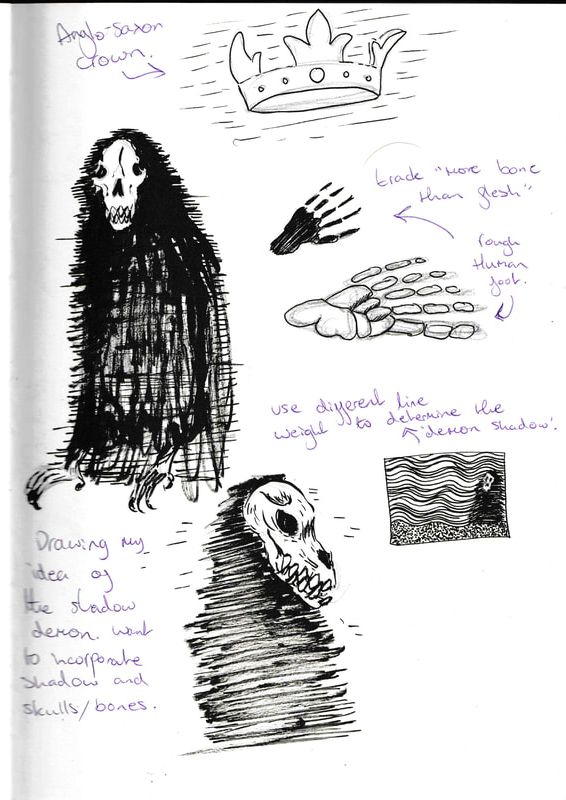 Anglo-Saxon
Crown.
"More bone
than flesh"
rough
Human
foot.
use different line
weight to determine the
'demon shadow'.
Drawing my
idea of
the shadow
demon. want
to incorporate
shadow and
skulls/bones.